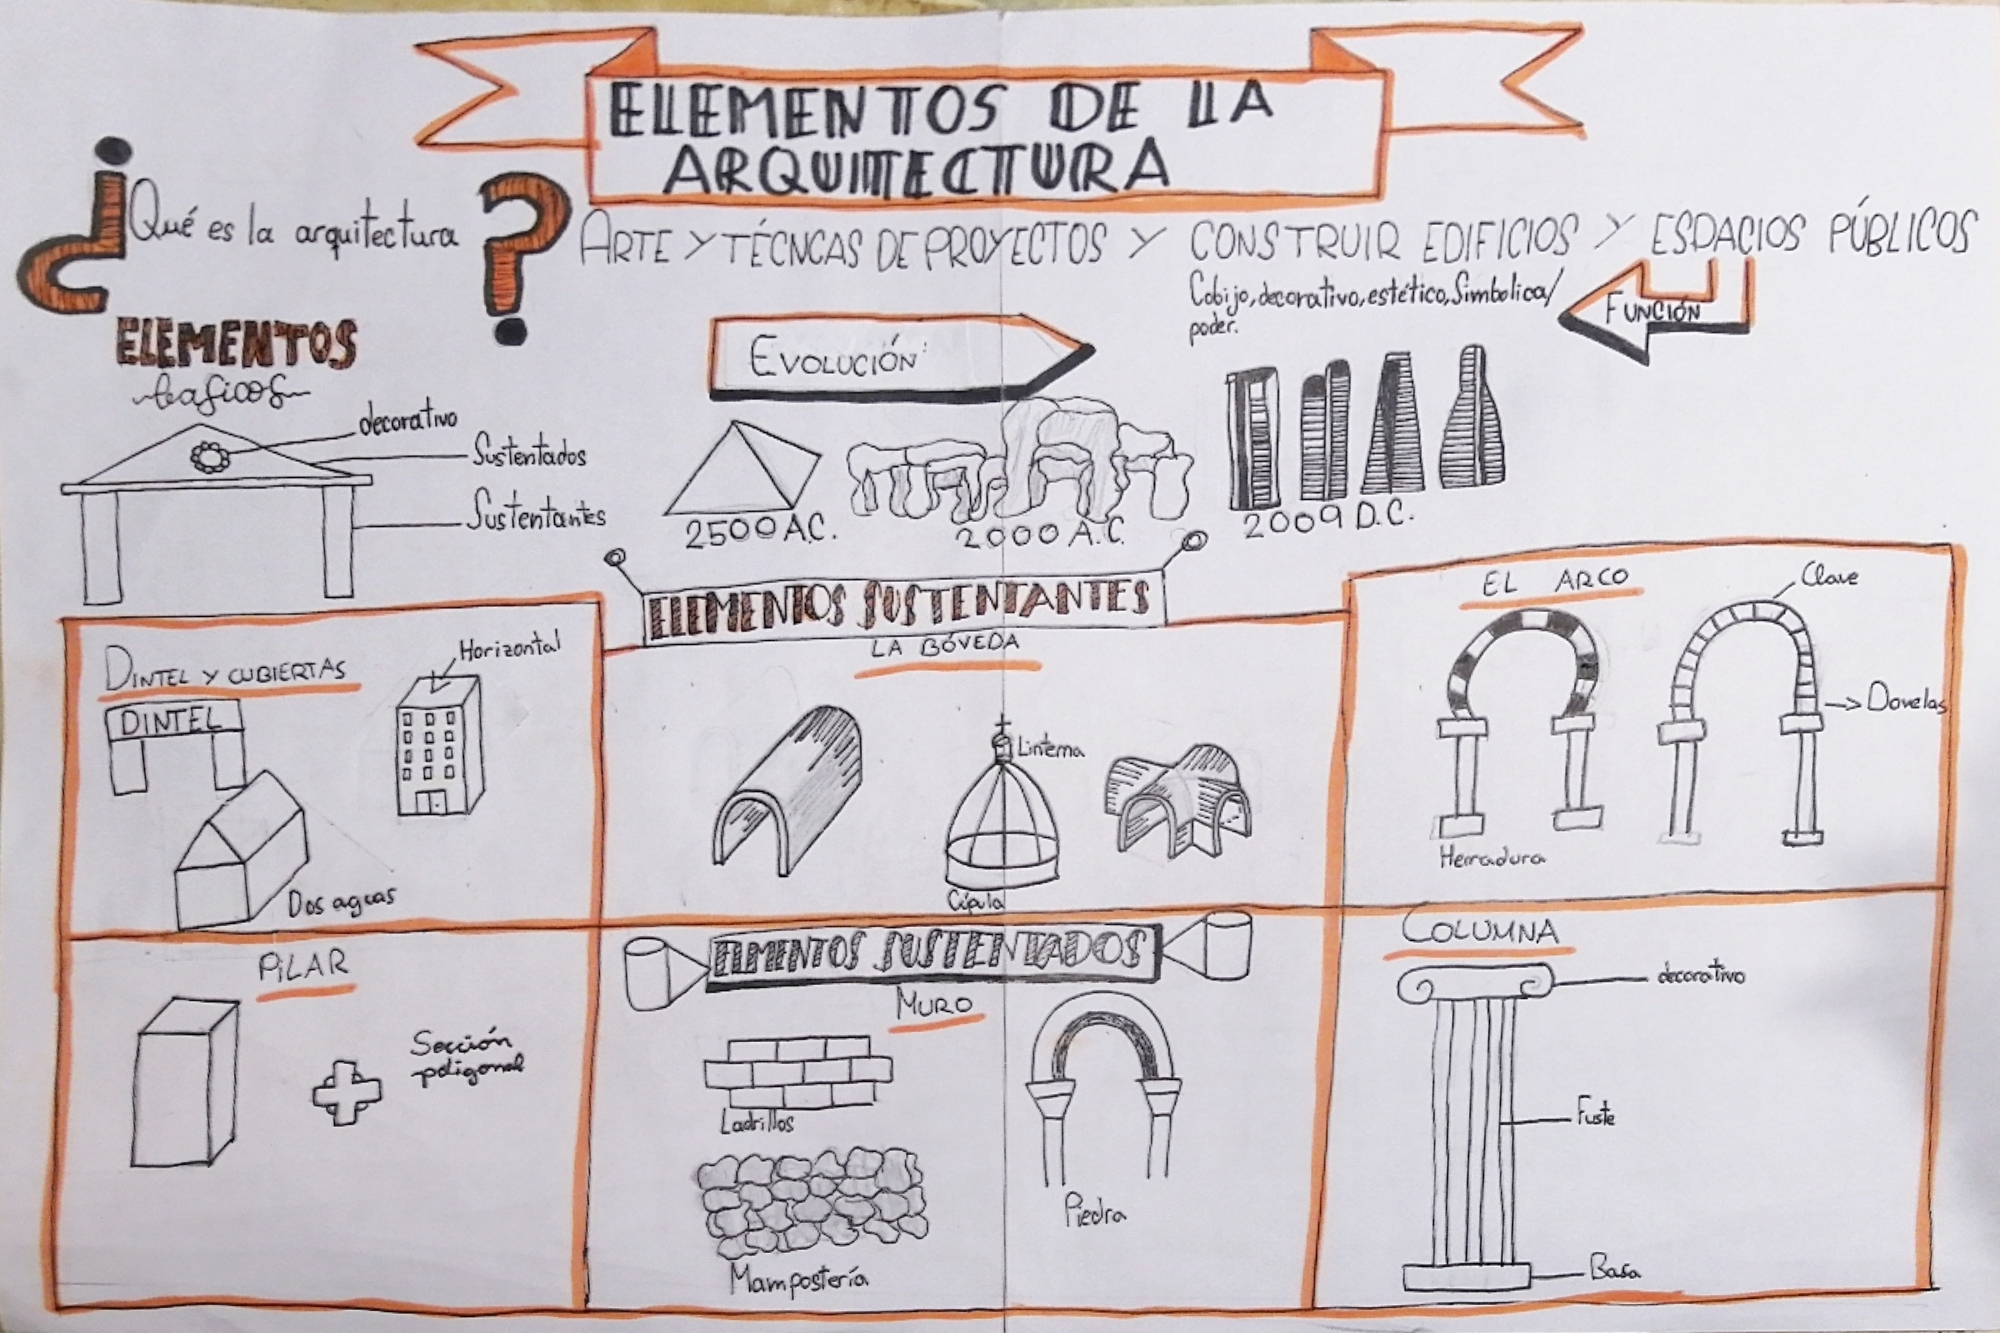 ELEMENTOS DE LA
ARQUITECTURA
¿Qué es la arquitectura?
ARTE Y TÉCNCAS DE PROYECTOS Y CONSTRUIR EDIFICIOS Y ESPACIOS PÚBLICOS
FUNCIÓN
Cobijo, decorativo, estético, Simbolica/
poder.
ELEMENTOS
basicos
decorativo
Sustentados
Sustentantes
EVOLUCIÓN:
2500 A.C.
2000 A.C.
2009 D.C.
ELEMENTOS SUSTENTANTES
DINTEL Y CUBIERTAS
DINTEL
Horizontal
Dos aguas
LA BÓVEDA
Linterna
Cúpula
EL ARCO
Clave
Dovelas
Herradura
PILAR
Sección
poligonal
ELMENTOS SUSTENTADOS
MURO
Ladrillos
Mampostería
Piedra
COLUMNA
decorativo
Fuste
Basa